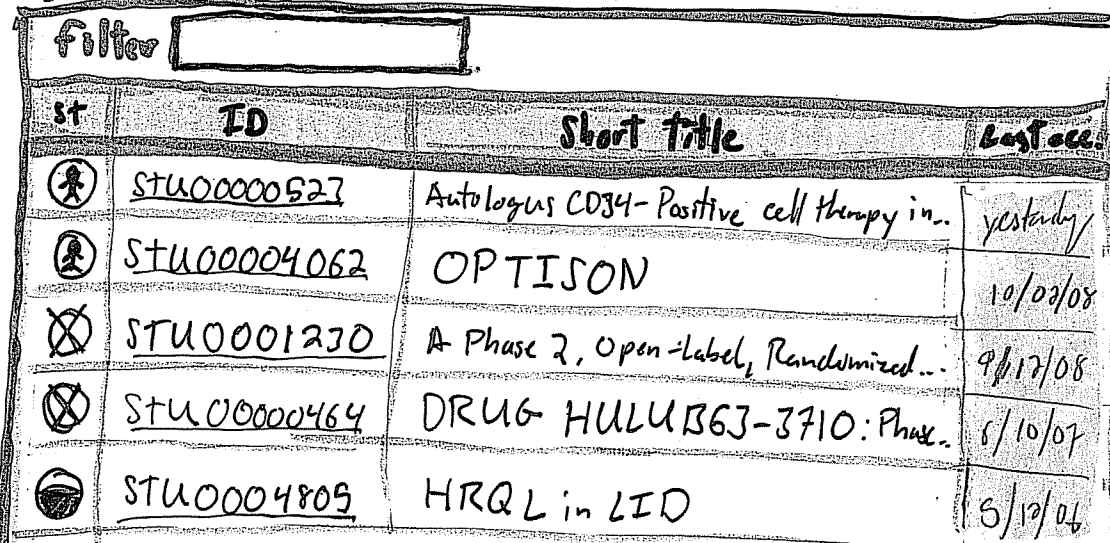 Filter
st ID Short Title Last acc.
STU00000523 Autologus CD34-Positive cell therapy in... yesterday
STU00004062 OPTISON 10/02/08
STU0001230 A Phase 2, Open-Label, Randomized... 9/12/08
STU00000464 DRUG HULUB63-3710: Phase... 6/10/07
STU0004809 HRQL in LID 5/12/06